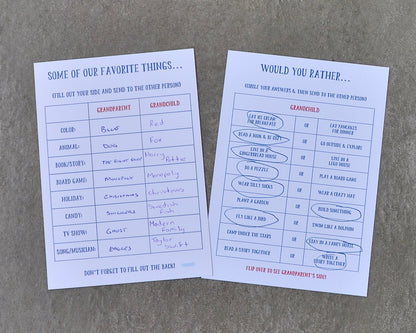 SOME OF OUR FAVORITE THINGS...
(FILL OUT YOUR SIDE AND SEND TO THE OTHER PERSON)
GRANDPARENT GRANDCHILD
COLOR: BLUE Red
ANIMAL: DOG Fox
BOOK/STORY: THE RIGHT STUFF Harry Potter
BOARD GAME: MONOPOLY Monopoly
HOLIDAY: CHRISTMAS Christmas
CANDY: SNICKERS Swedish Fish
TV SHOW: Modern Family
SONG/MUSICIAN: EAGLES Taylor Swift
DON'T FORGET TO FILL OUT THE BACK!
WOULD YOU RATHER...
(CIRCLE YOUR ANSWERS & THEN SEND TO THE OTHER PERSON)
GRANDCHILD
EAT ICE CREAM FOR BREAKFAST OR EAT PANCAKES FOR DINNER
READ A BOOK & BE COZY OR GO OUTSIDE & EXPLORE
LIVE IN A GINGERBREAD HOUSE OR LIVE IN A LEGO HOUSE
DO A PUZZLE OR PLAY A BOARD GAME
WEAR SILLY SOCKS OR WEAR A CRAZY HAT
PLANT A GARDEN OR BUILD SOMETHING
FLY LIKE A BIRD OR SWIM LIKE A DOLPHIN
CAMP UNDER THE STARS OR STAY IN A FANCY HOTEL
READ A STORY TOGETHER OR WRITE A STORY TOGETHER
FLIP OVER TO SEE GRANDPARENT'S SIDE!